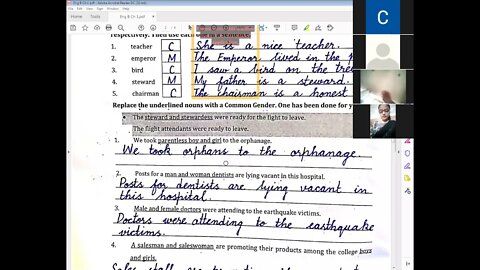 Eng B Ch 2.pdf - Adobe Acrobat Reader DC
respectively. Then use each one in a sentence.
1. teacher C She is a nice teacher.
2. emperor M The Emperor lived in the
3. bird C I saw a bird on the tree
4. steward M My father is a steward.
5. chairman C The chairman is a honest
Replace the underlined nouns with a Common Gender. One has been done for
• The steward and stewardess were ready for the fight to leave.
The flight attendants were ready to leave.
1. We took parentless boy and girl to the orphanage.
We took orphans to the orphanage.
2. Posts for a man and woman dentists are lying vacant in this hospital.
Posts for dentists are lying vacant in
this hospital.
3. Male and female doctors were attending to the earthquake victims.
Doctors were attending to the earthquake
victims.
4. A salesman and saleswoman are promoting their products among the college boys
and girls.
C